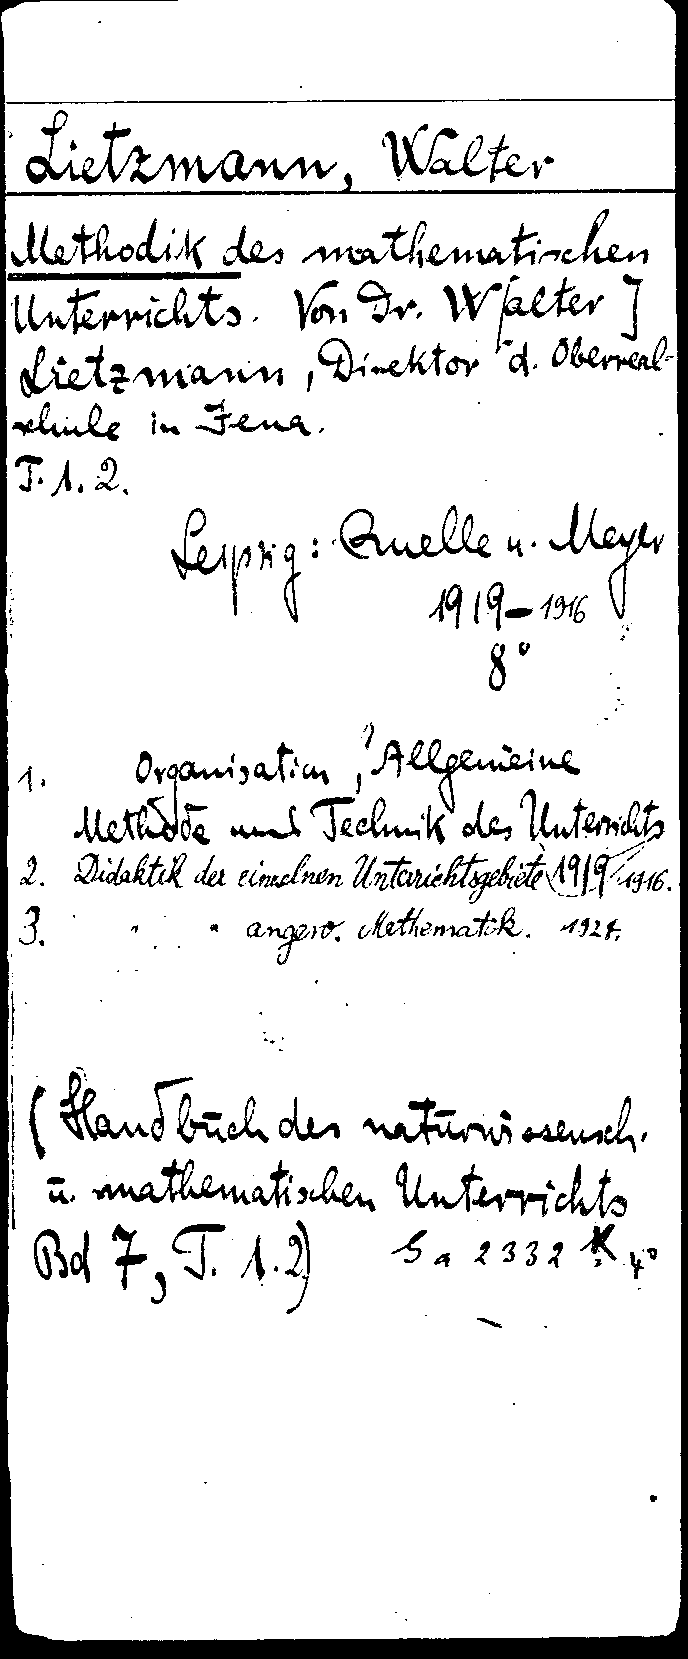 Lietzmann, Walter
Methodik des mathematischen
Unterrichts. Von Dr. W[alter]
Lietzmann, Direktor d. Oberreal-
schule in Jena.
T. 1. 2.
Leipzig: Quelle u. Meyer
1919–1916
8°
1. Organisation, Allgemeine
Methode und Technik des Unterrichts
2. Didaktik der einzelnen Unterrichtsgebiete 1919 1916.
3. " " " angew. Mathematik. 1924.
(Handbuch des naturwissensch.
u. mathematischen Unterrichts
Bd 7, T. 1.2) Sa 2332 4°